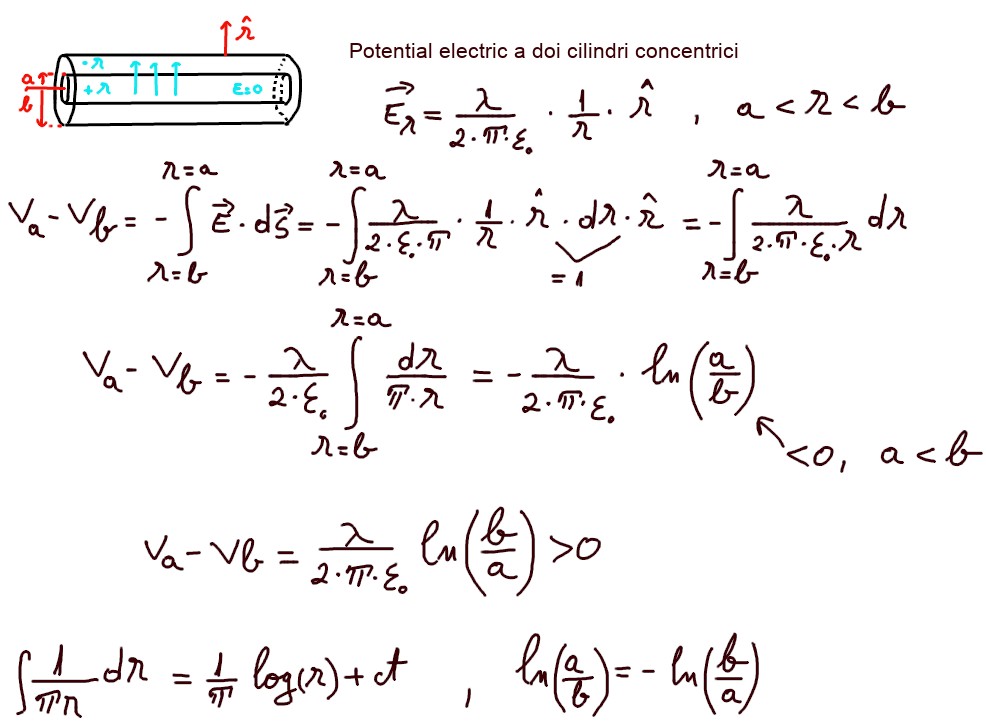 r̂
Potential electric a doi cilindri concentrici
a
b
- λ
+ λ
E=0
E⃗_r = λ/(2·π·ε₀) · 1/r · r̂ , a < r < b
V_a - V_b = - ∫_{r=b}^{r=a} E⃗ · ds⃗ = - ∫_{r=b}^{r=a} λ/(2·ε₀·π) · 1/r · r̂ · dr · r̂ = - ∫_{r=b}^{r=a} λ/(2·π·ε₀·r) dr
= 1
V_a - V_b = - λ/(2·ε₀) ∫_{r=b}^{r=a} dr/(π·r) = - λ/(2·π·ε₀) · ln(a/b)
<0, a < b
V_a - V_b = λ/(2·π·ε₀) ln(b/a) >0
∫ 1/(πr) dr = 1/π log(r) + ct , ln(a/b) = - ln(b/a)